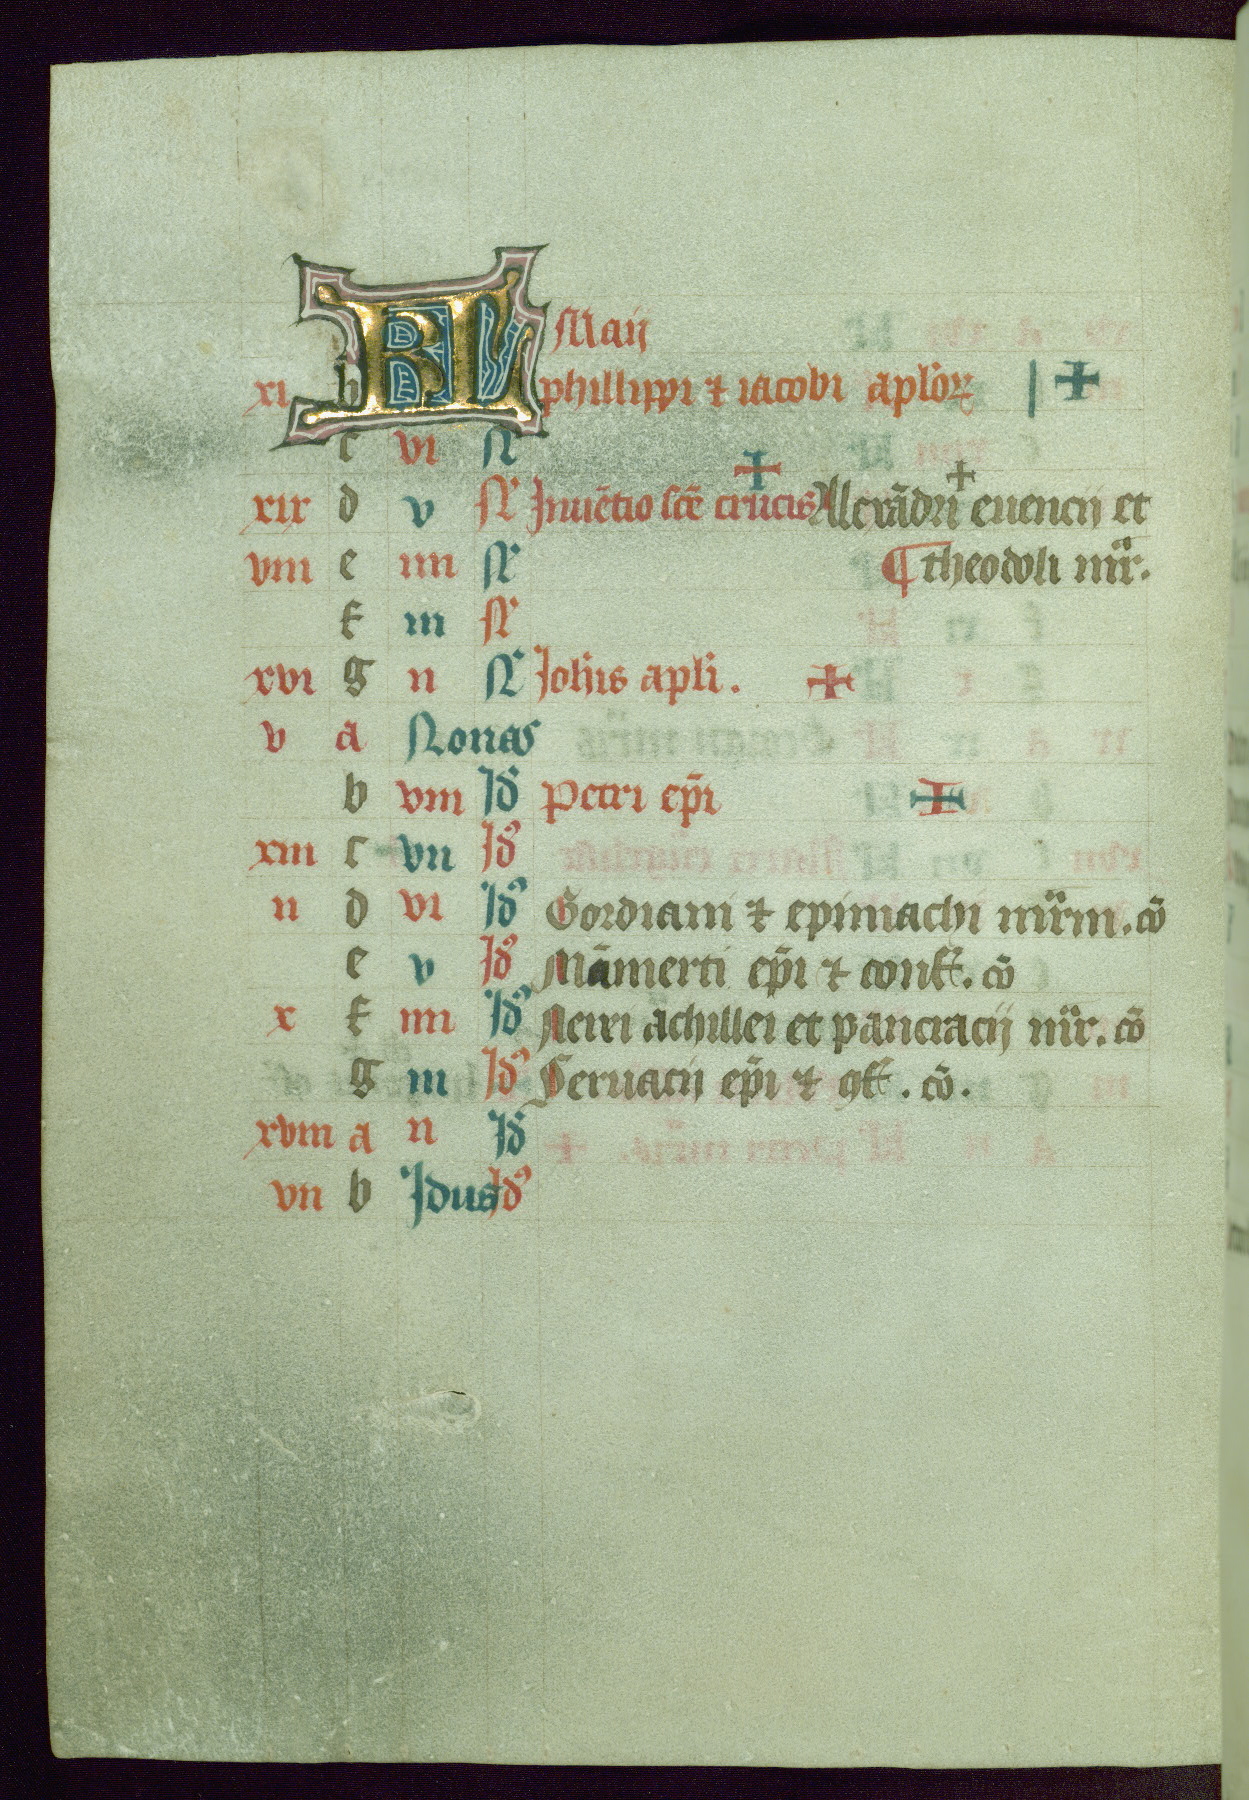 KL Maij
xi b phillippi ⁊ iacobi apl̄oꝝ
c vi N
xix d v N Inuētio sc̄e crucis Alexādri euencij et
viii e iiii N ¶ theodoli mr̄.
f iii N
xvi g ii N Ioh̄is apl̄i.
v a Nonas
b viii Id Petri ep̄i
xiii c vii Id
ii d vi Id Gordiani ⁊ epimachi mr̄m. cō
e v Id Māmerti ep̄i ⁊ conf. cō
x f iiii Id Nerei achillei et pancracij mr̄. cō
g iii Id Seruacij ep̄i ⁊ ꝯf. cō.
xviii a ii Id
vii b Idus Id